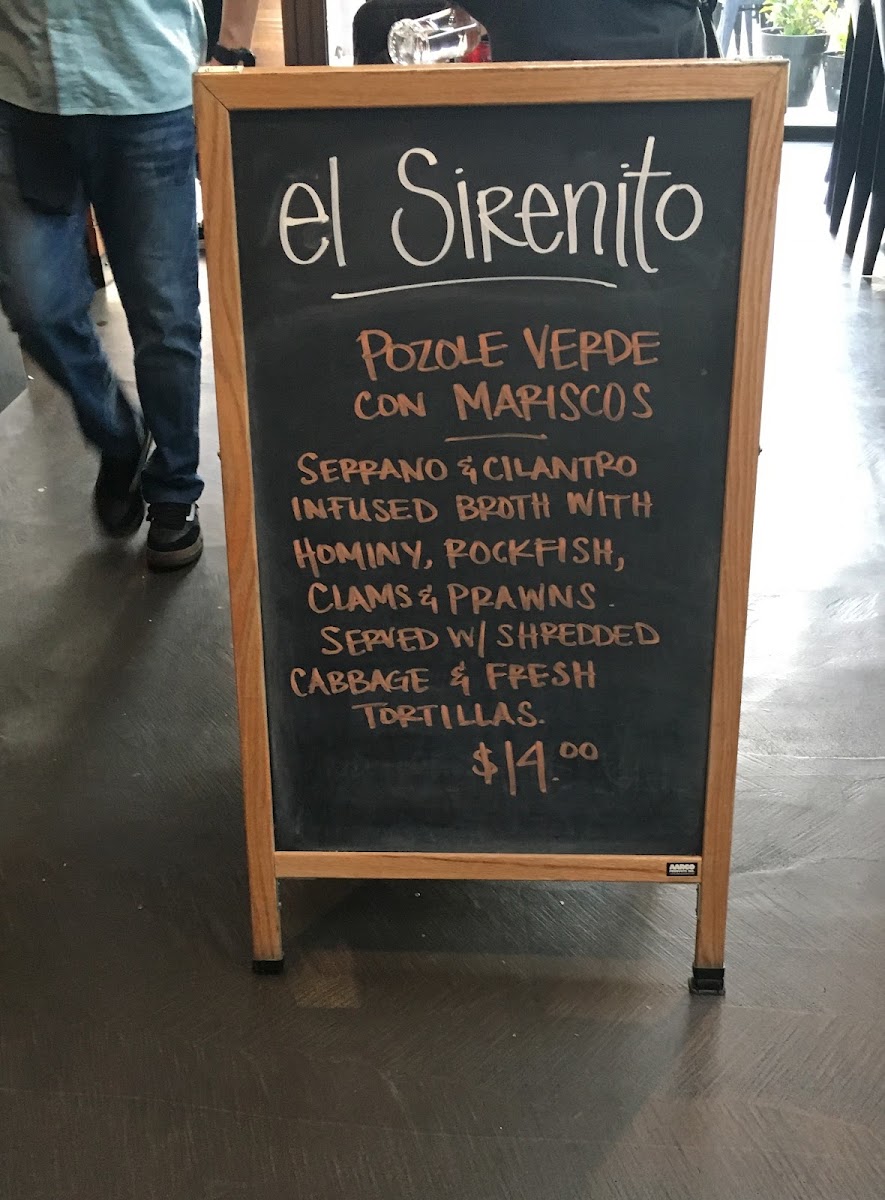 el Sirenito
POZOLE VERDE
CON MARISCOS
SERRANO & CILANTRO
INFUSED BROTH WITH
HOMINY, ROCKFISH,
CLAMS & PRAWNS.
SERVED W/ SHREDDED
CABBAGE & FRESH
TORTILLAS.
$14.00
AARCO